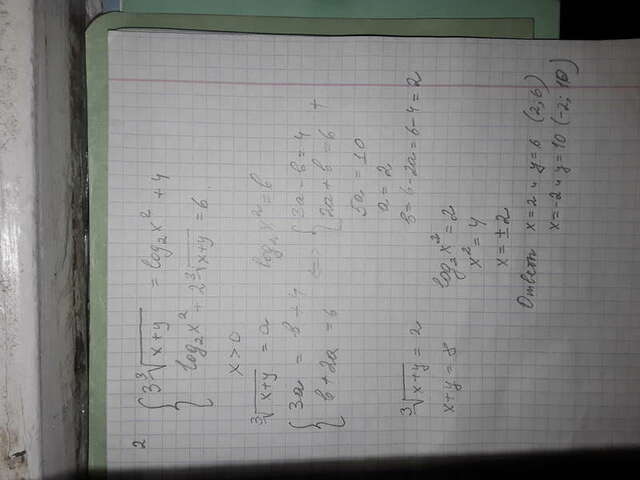 2
{ 3∛(x+y) = log₂x² + 4
{ log₂x² + 2∛(x+y) = 6.
x > 0
∛(x+y) = a log₂x² = b
{ 3a = b + 4 <=> { 3a - b = 4
{ b + 2a = 6 { 2a + b = 6 +
5a = 10
a = 2
b = 6 - 2a = 6 - 4 = 2
∛(x+y) = 2
x + y = 8
log₂x² = 2
x² = 4
x = ±2
Ответ x = 2 и y = 6 (2; 6)
x = -2 и y = 10 (-2; 10)